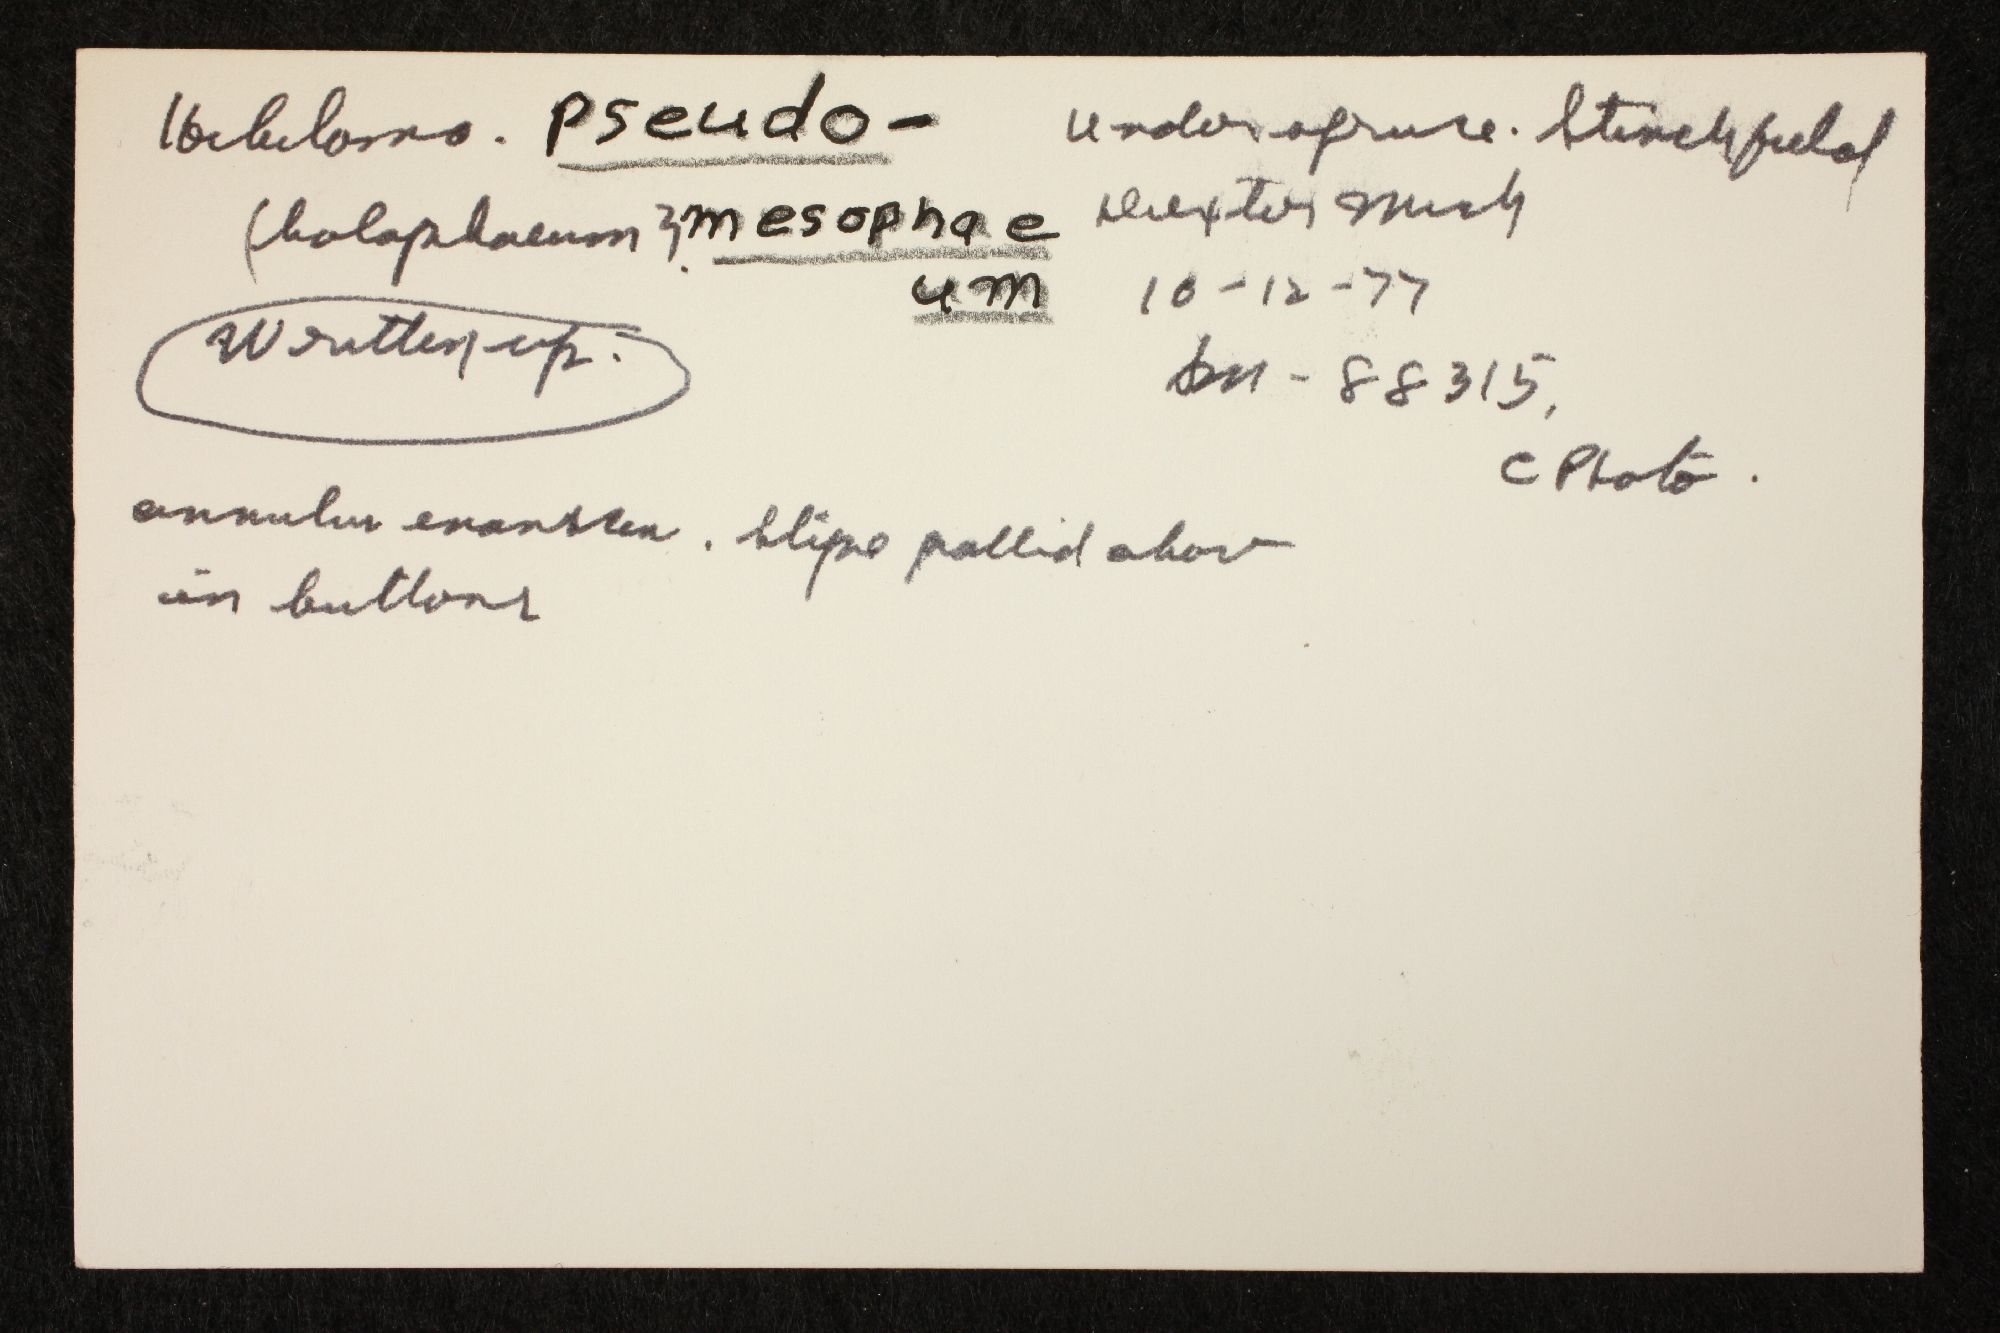 Hebeloma. pseudo-
(holophaeum?) mesophae
um
Written up.
under spruce. Stinchfield
Dexter Mich
10-12-77
Sm - 88315.
C Photo.
annulus evanescen. Stipe pallid above
in buttons